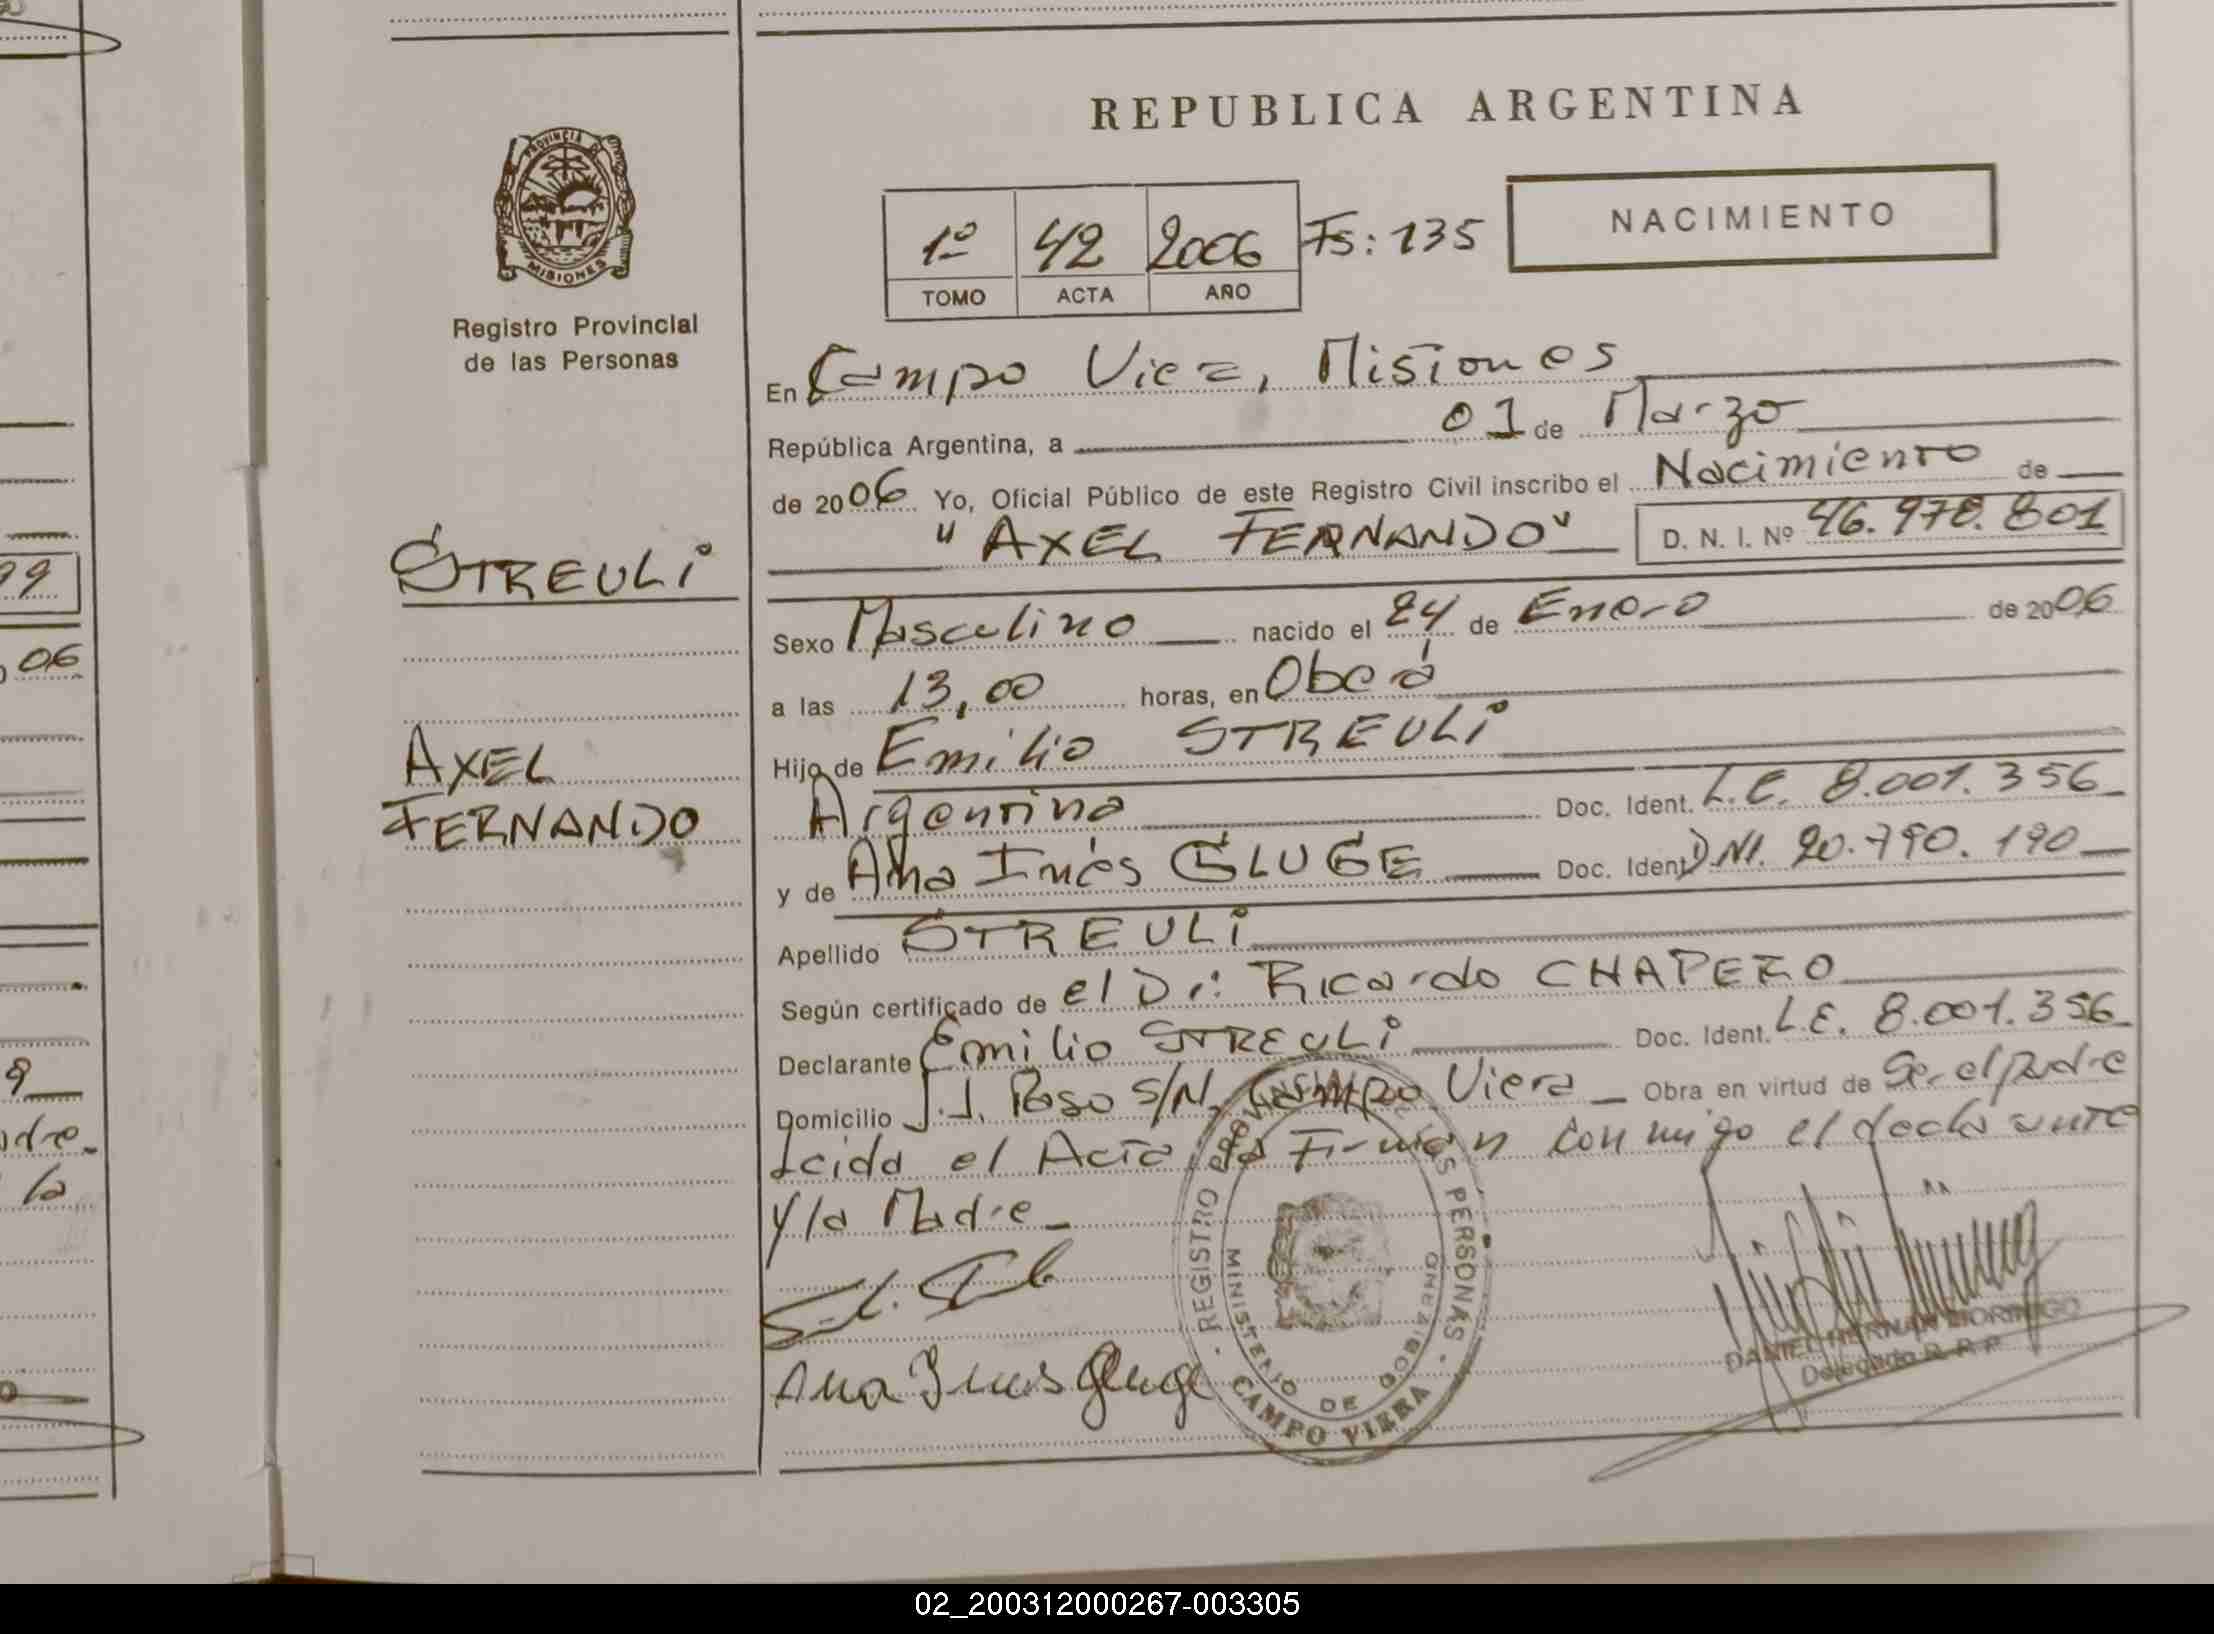 REPUBLICA ARGENTINA
PROVINCIA DE
MISIONES
Registro Provincial
de las Personas
1º 42 2006 Fs: 135
TOMO ACTA AÑO
NACIMIENTO
En Campo Viera, Misiones
República Argentina, a 01 de Marzo
de 2006 Yo, Oficial Público de este Registro Civil inscribo el Nacimiento de
"AXEL FERNANDO" D. N. I. Nº 46.978.801
STREULI
AXEL
FERNANDO
Sexo Masculino nacido el 24 de Enero de 2006
a las 13,00 horas, en Oberá
Hijo de Emilio STREULI
Argentina Doc. Ident. L.E. 8.001.356
y de Ana Inés GLUGE Doc. Ident. DNI. 20.790.190
Apellido STREULI
Según certificado de el Dr: Ricardo CHAPERO
Declarante Emilio STREULI Doc. Ident. L.E. 8.001.356
Domicilio J.J. Paso S/N, Campo Viera Obra en virtud de Ser el padre
Leida el Acta la Firman conmigo el declarante
y la Madre
Ana Ines Gluge
REGISTRO PROVINCIAL DE LAS PERSONAS
MINISTERIO DE GOBIERNO
CAMPO VIERA
DANIEL HERNAN
Delegado R. P. P.
99
06
9
la
02_200312000267-003305